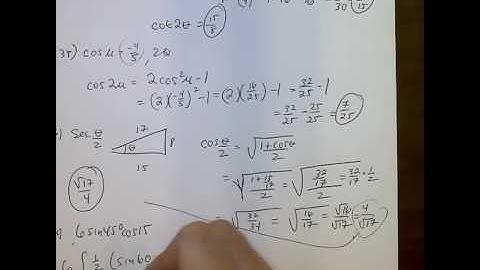 cot2θ = 15/8
30 15
35) cos u = -4/5, 2Q
cos2u = 2cos²u - 1
= (2)(-4/5)² - 1 = (2)(16/25) - 1 = 32/25 - 1
= 32/25 - 25/25 = 7/25
) Sec θ/2
17
θ
8
15
√17/4
cos θ/2 = √(1+cosθ/2)
= √(1+15/17/2) = √(32/17/2) = 32/17 · 1/2
= √(32/34) = √(16/17) = √16/√17 = 4/√17
6 sin45° cos15
6 ∫ 1/2 (sin60